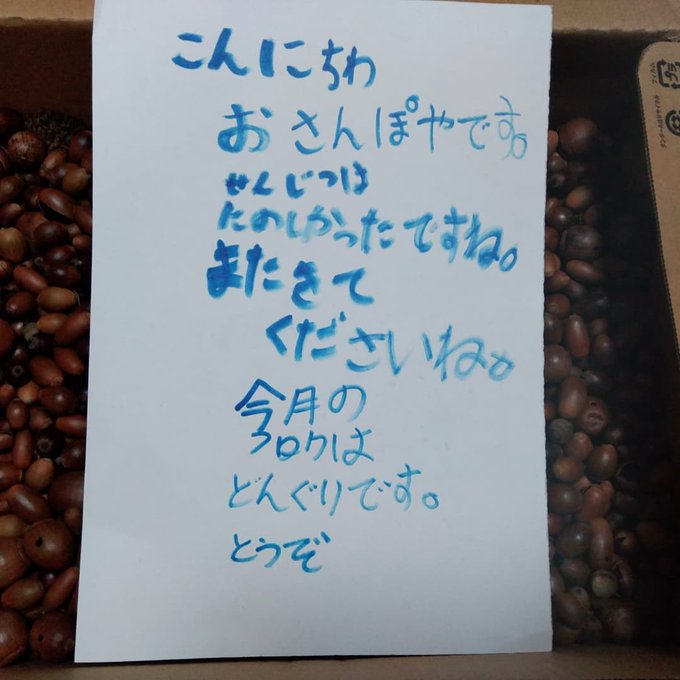 こんにちわ
おさんぽやです。
せんじつは
たのしかったですね。
またきて
くださいね。
今月の
フロクは
どんぐりです。
とうぞ
プラ
フィルム